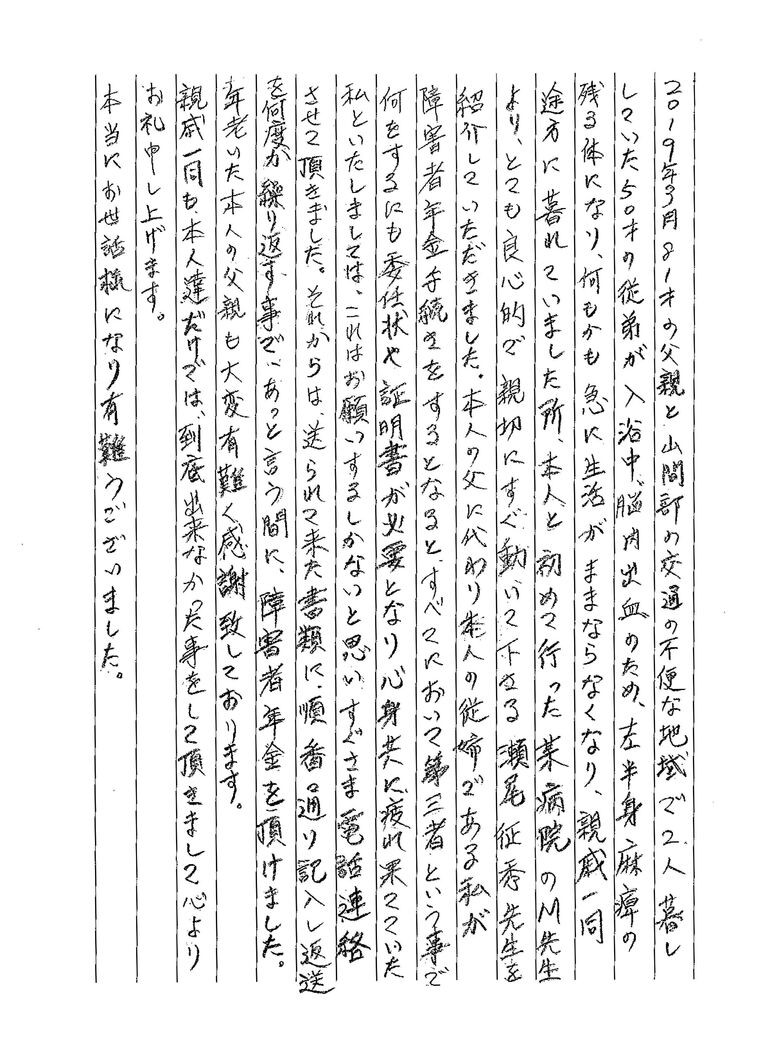 2019年3月81才の父親と山間部の交通の不便な地域で2人暮し
していた50才の従弟が入浴中、脳内出血のため、左半身麻痺の
残る体になり、何もかも急に生活がままならなくなり、親戚一同
途方に暮れていました所、本人と初めて行った某病院のM先生
より、とても良心的で親切にすぐ動いて下さる瀬尾征秀先生を
紹介していただきました。本人の父に代わり本人の従姉である私が
障害者年金手続きをするとなると、すべてにおいて第三者という事で
何をするにも委任状や証明書が必要となり心身共に疲れ果てていた
私といたしましては、これはお願いするしかないと思いすぐさま電話連絡
させて頂きました。それからは、送られて来た書類に、順番通り記入し返送
を何度か繰り返す事で、あっと言う間に、障害者年金を頂けました。
年老いた本人の父親も大変有難く感謝致しております。
親戚一同も、本人達だけでは、到底出来なかった事をして頂きまして心より
お礼申し上げます。
本当にお世話様になり有難うございました。